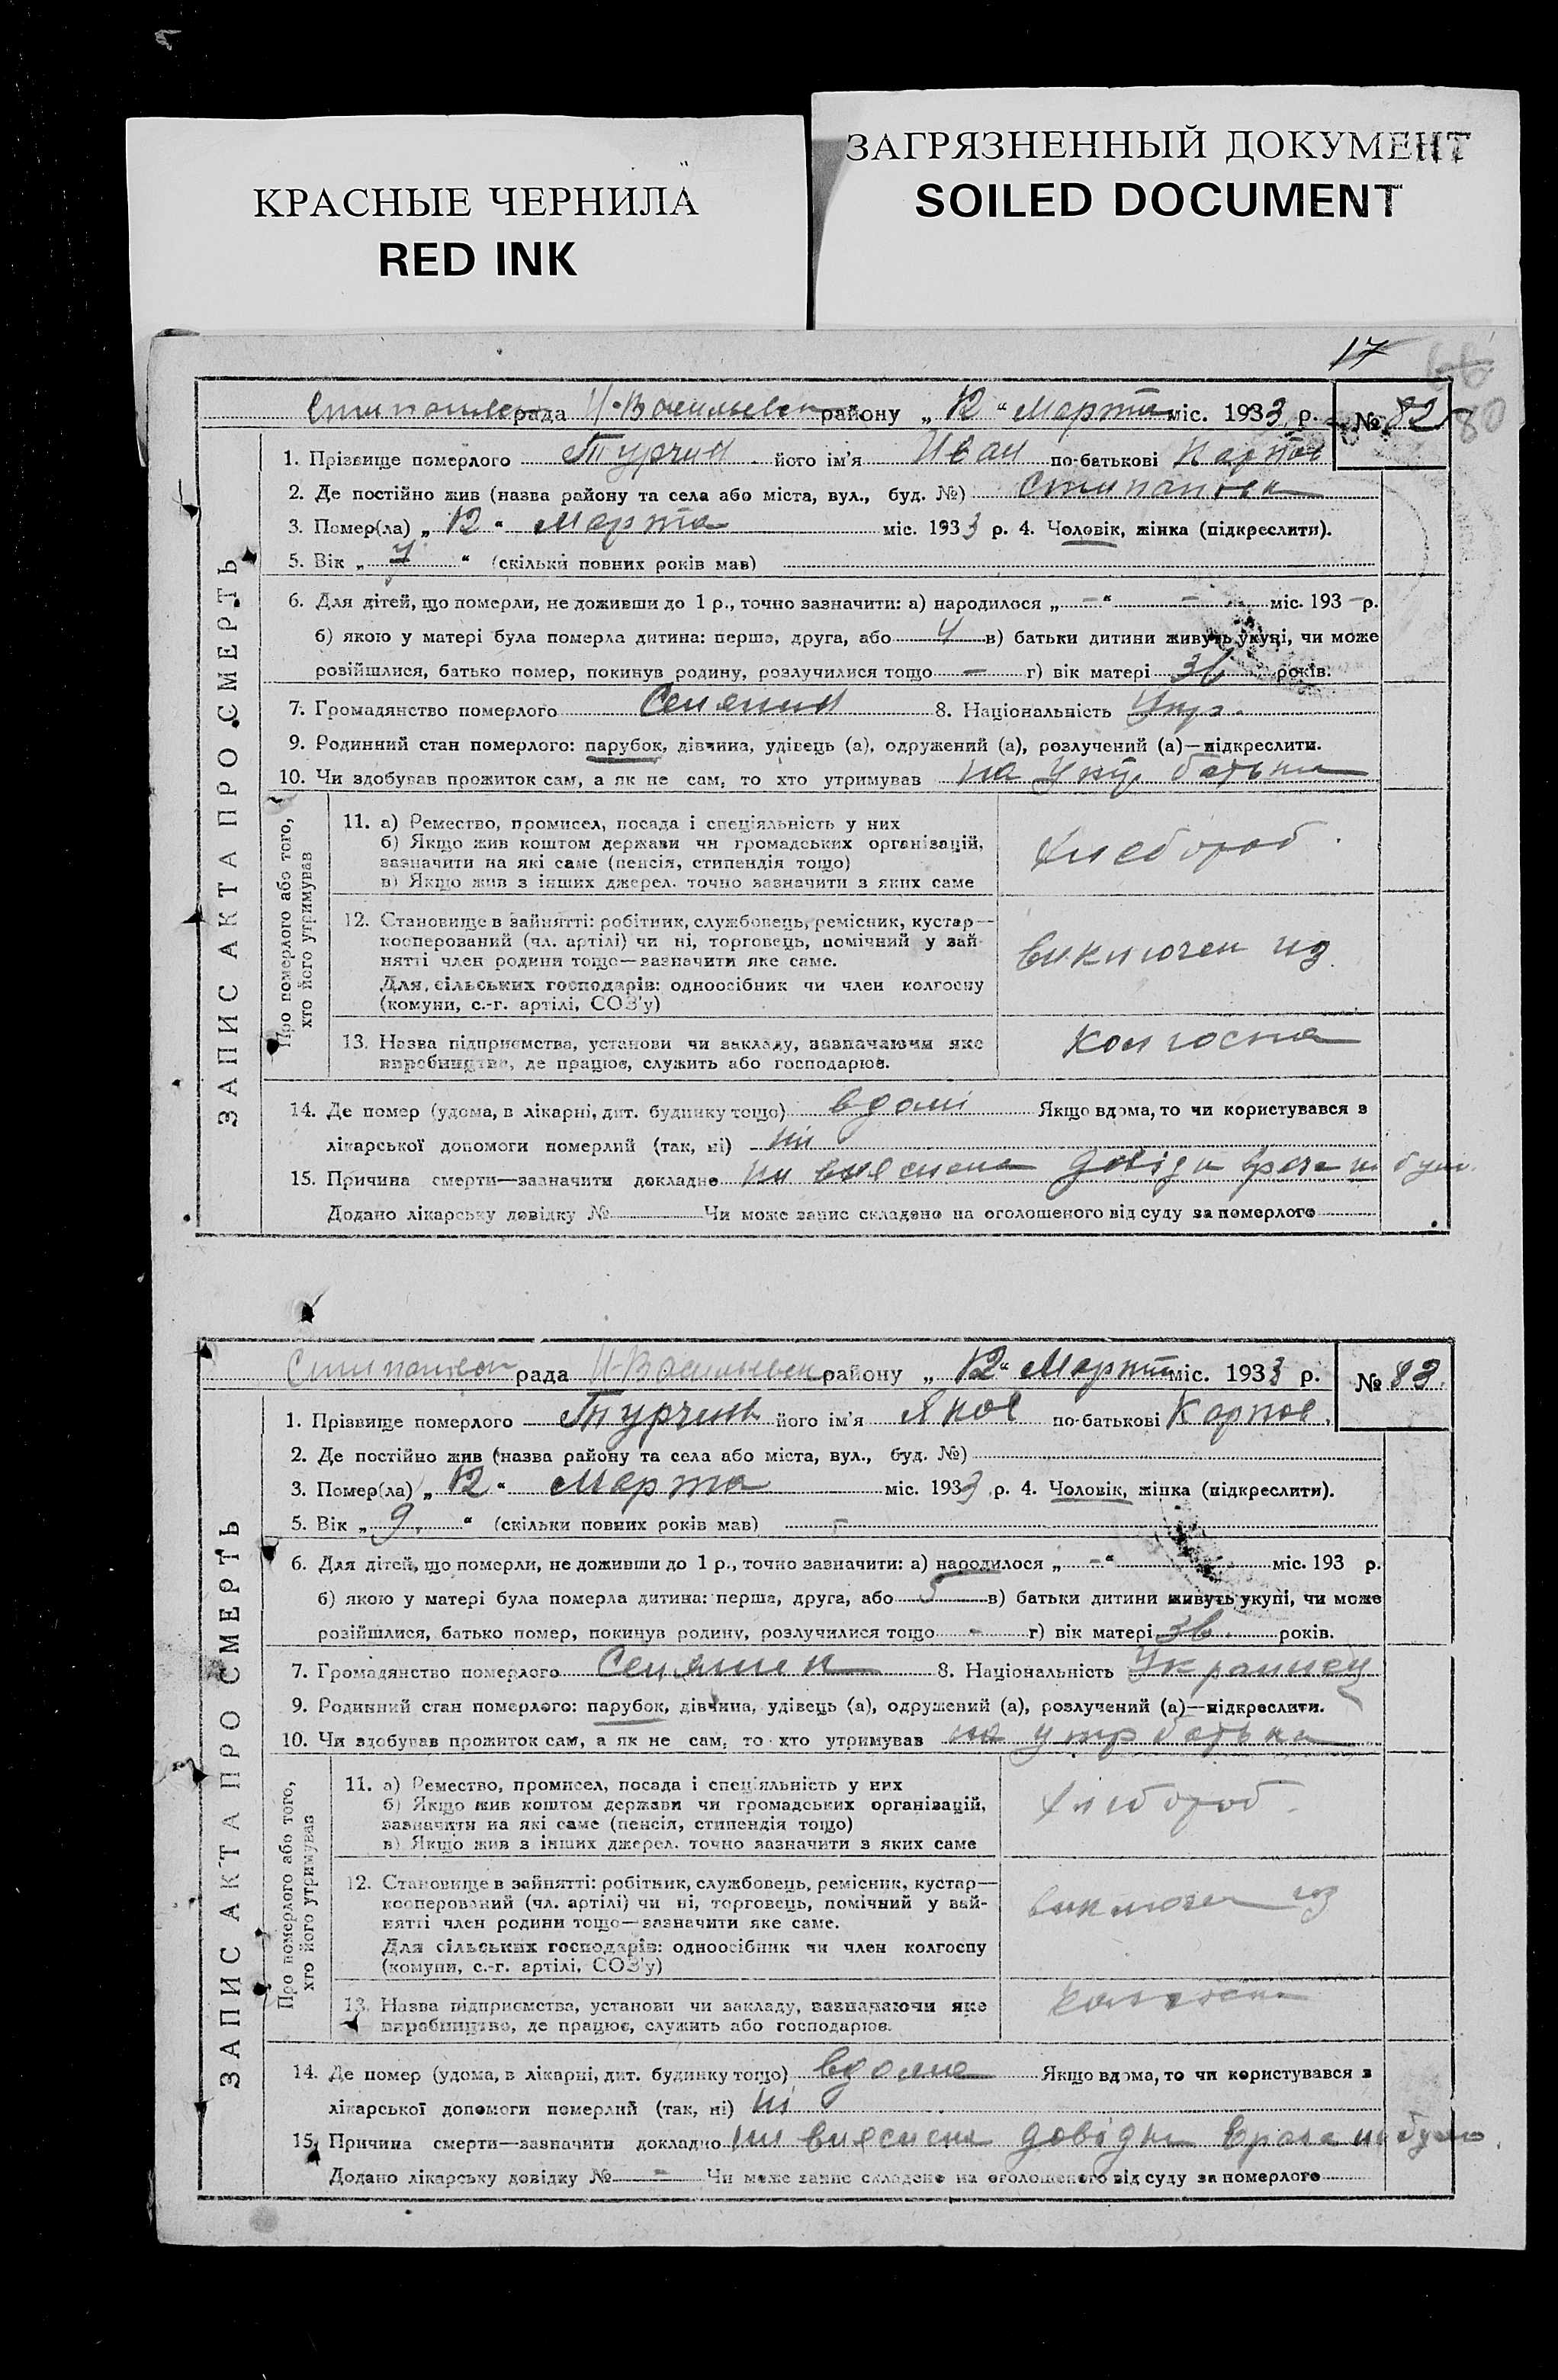 ЗАГРЯЗНЕННЫЙ ДОКУМЕНТ
SOILED DOCUMENT
КРАСНЫЕ ЧЕРНИЛА
RED INK
17
80
рада Н-Васильевск району „ 12 “ Марта міс. 1933 р. № 82
ЗАПИС АКТА ПРО СМЕРТЬ
1. Прізвище померлого Турчин його ім'я Иван по-батькові Карпов
2. Де постійно жив (назва району та села або міста, вул., буд. №) Стипановка
3. Помер(ла) „ 12 “ Марта міс. 1933 р. 4. Чоловік, жінка (підкреслити).
5. Вік „ “ (скільки повних років мав)
6. Для дітей, що померли, не доживши до 1 р., точно зазначити: а) народилося „ – “ – міс. 193 – р.
б) якою у матері була померла дитина: перша, друга, або 4 в) батьки дитини живуть укупі, чи може
розійшлися, батько помер, покинув родину, розлучилися тощо – г) вік матері 36 років.
7. Громадянство померлого Селянин 8. Національність Укр.
9. Родинний стан померлого: парубок, дівчина, удівець (а), одружений (а), розлучений (а)—підкреслити.
10. Чи здобував прожиток сам, а як не сам, то хто утримував на батька
Про померлого або того,
хто його утримував
11. а) Ремество, промисел, посада і спеціяльність у них
б) Якщо жив коштом держави чи громадських організацій,
зазначити на які саме (пенсія, стипендія тощо)
в) Якщо жив з інших джерел. точно зазначити з яких саме
хлебороб.
12. Становище в зайнятті: робітник, службовець, ремісник, кустар—
кооперований (чл. артілі) чи ні, торговець, помічний у зай-
нятті член родини тощо—зазначити яке саме.
Для сільських господарів: одноосібник чи член колгоспу
(комуни, с.-г. артілі, СОЗ'у)
виключен из
13. Назва підприємства, установи чи закладу, зазначаючи яке
виробництво, де працює, служить або господарює.
колгоспа
14. Де помер (удома, в лікарні, дит. будинку тощо) вдомі Якщо вдома, то чи користувався з
лікарської допомоги померлий (так, ні) ні
15. Причина смерти—зазначити докладно ни вияснена довідки врача не було
Додано лікарську довідку № Чи може запис складено на оголошеного від суду за померлого
Стипановск рада Н-Васильевск району „ 12 “ Марта міс. 1933 р. № 83.
ЗАПИС АКТА ПРО СМЕРТЬ
1. Прізвище померлого Турчин його ім'я Яков по-батькові Карпов.
2. Де постійно жив (назва району та села або міста, вул., буд. №)
3. Помер(ла) „ 12 “ Марта міс. 1933 р. 4. Чоловік, жінка (підкреслити).
5. Вік „ 9. “ (скільки повних років мав) –
6. Для дітей, що померли, не доживши до 1 р., точно зазначити: а) народилося „ – “ міс. 193 р.
б) якою у матері була померла дитина: перша, друга, або 5 в) батьки дитини живуть укупі, чи може
розійшлися, батько помер, покинув родину, розлучилися тощо – г) вік матері 36. років.
7. Громадянство померлого Селянин 8. Національність Украинец
9. Родинний стан померлого: парубок, дівчина, удівець (а), одружений (а), розлучений (а)—підкреслити.
10. Чи здобував прожиток сам, а як не сам, то хто утримував на утр батька
Про померлого або того,
хто його утримував
11. а) Ремество, промисел, посада і спеціяльність у них
б) Якщо жив коштом держави чи громадських організацій,
зазначити на які саме (пенсія, стипендія тощо)
в) Якщо жив з інших джерел. точно зазначити з яких саме
хлебороб.
12. Становище в зайнятті: робітник, службовець, ремісник, кустар—
кооперований (чл. артілі) чи ні, торговець, помічний у зай-
нятті член родини тощо—зазначити яке саме.
Для сільських господарів: одноосібник чи член колгоспу
(комуни, с.-г. артілі, СОЗ'у)
виключен из
13. Назва підприємства, установи чи закладу, зазначаючи яке
виробництво, де працює, служить або господарює.
колгоспа
14. Де помер (удома, в лікарні, дит. будинку тощо) вдоме Якщо вдома, то чи користувався з
лікарської допомоги померлий (так, ні) ні
15. Причина смерти—зазначити докладно ни вияснена довідки врача не було.
Додано лікарську довідку № – Чи може запис складено на оголошеного від суду за померлого